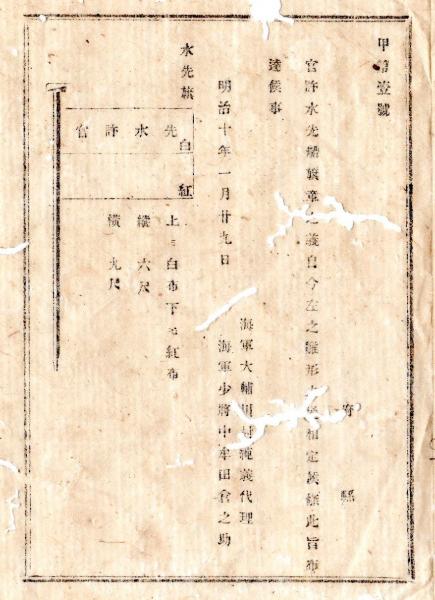 甲第壹號
府縣
官許水先船旗章之義自今左之雛形之通相定候條此旨布
達候事
明治十年一月廿九日
海軍大輔川村純義代理
海軍少將中牟田倉之助
水先旗
官許水先
白
紅
上ミ白布下モ紅布
縱六尺
橫九尺